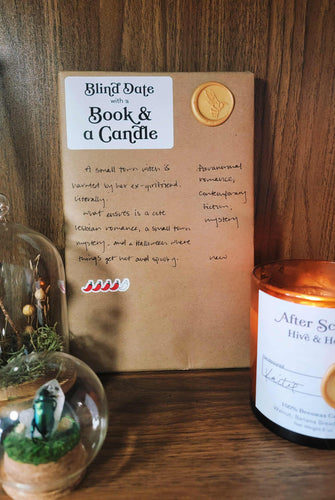 Blind Date
with a
Book &
a Candle
A small town witch is
haunted by her ex-girlfriend.
Literally.
What ensues is a cute
lesbian romance, a small town
mystery, and a Halloween where
things get hot and spooky.
Paranormal
romance,
contemporary
fiction,
mystery
new
After Sc
Hive & H
100% Beeswax C